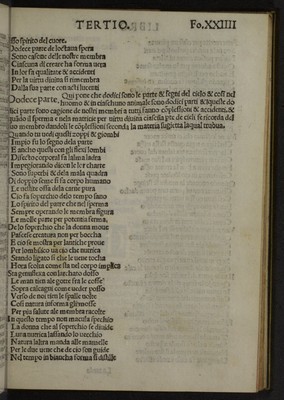 TERTIO. Fo.XXIIII
sso spirito del cuore.
Dodece parte de loctaua spera
Sono casone delle nostre membra
Ciascuna di cerare ha forma uera
In lor fa qualitate & accidenti
Per la uirtu diuina si rimembra
Dalla sua parte con acti lucenti
Dodece parte. Qui pone che dodici sono le parte & segni del cielo & cosi nel
huomo & in ciaschuno animale sono dodici parti & queste do
dici parte sono cagione de nostri membri a tutti
quido il sperma e nela matrice per uirtu diuina ciascúa pte de cieli si ricorda del
suo membro dandoli le secondo la materia subiecta laqual troua.
Quando tu uedi questi zoppi & giombi
Impio fu lo segno dela parte
E anche questi con gli flexi lombi
Disecto corporal fa lalma ladra
Impregiorando dico nele lor charte
Sono superbi & dela mala quadra
Di doppio seme si fa corpo humano
Le nostre ossa dela carne pura
Cio fa soperchio delo tempo sano
Lo spirito del patre che nel sperma
Sempre operando le membra figura
Le molle parte per potentia ferma
Delo soperchio che la donna moue
Pascesi creatura non per boccha
E cio se mostra per antiche proue
Per lombilico ua cio che nutrica
Stando ligato si che le uene tocha
Hora scolta come sta nel corpo
Sta genuflexa con larchato dosso
Le man tien ale gotte fra le coste
Sopra calcagni come ueder posso
Verso de noi tien le spalle uolte
Cosi natura informa gliemosse
Per piu salute ale membra racolte
In questo tempo non macula spechio
La donna che al soperchio se diuide
Luna nutrica lassando lo uechio
Natura laltra manda alle mamelle
Per le due uene che de cio son guide
Nel tempo in biancha forma si distille